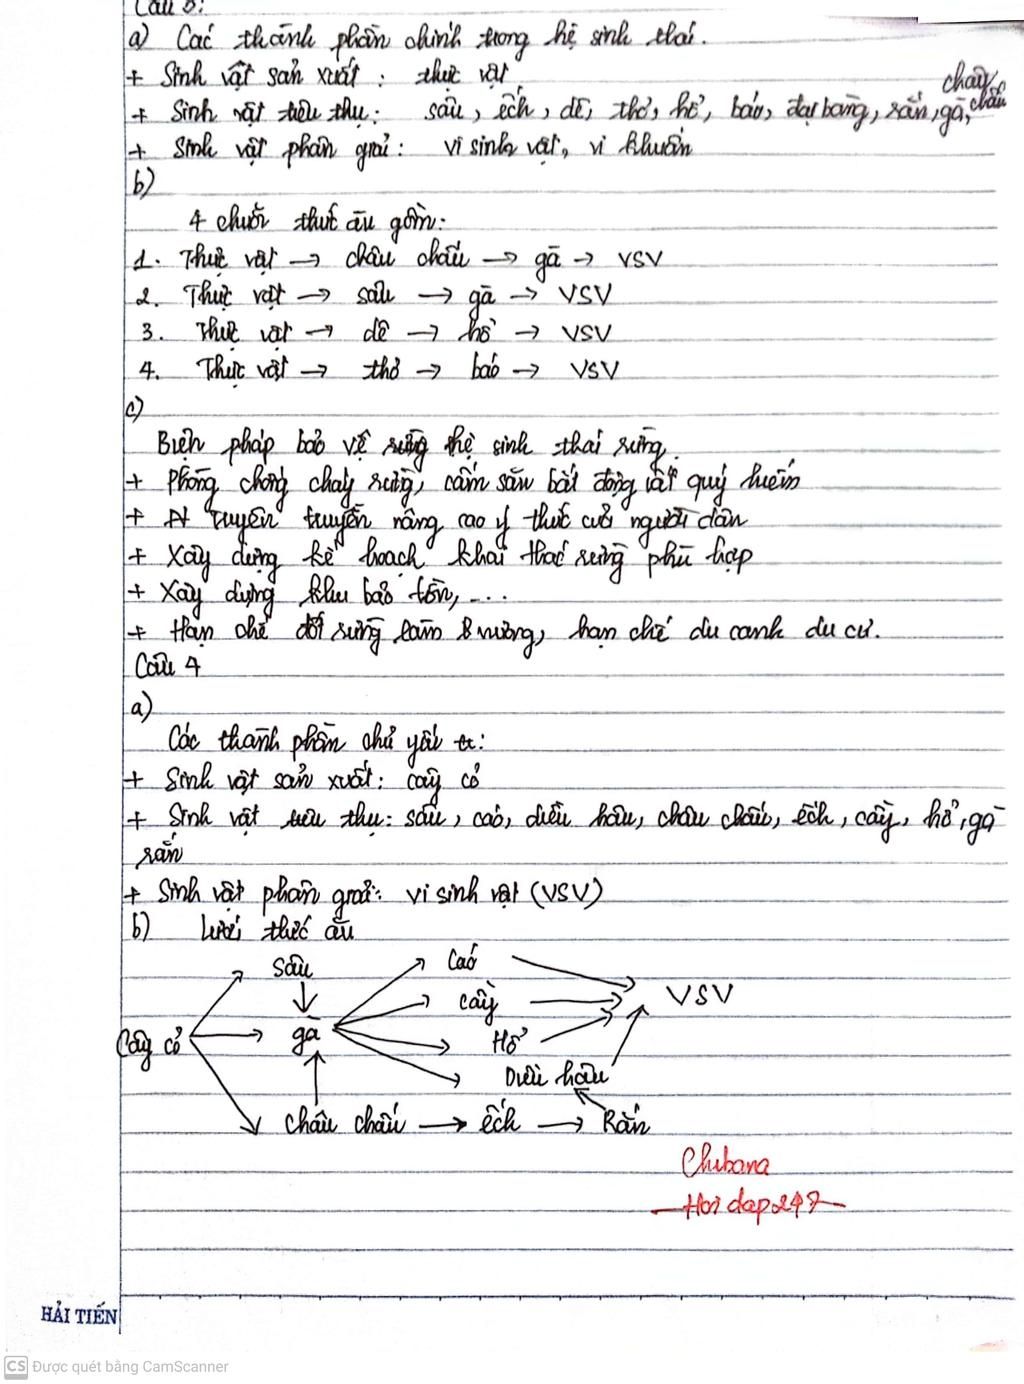 Câu 3:
a) Các thành phần chính trong hệ sinh thái.
+ Sinh vật sản xuất : thực vật
+ Sinh vật tiêu thụ: sâu, ếch, dê, thỏ, hổ, báo, đại bàng, rắn, gà, châu chấu
+ Sinh vật phân giải : vi sinh vật, vi khuẩn
b)
4 chuỗi thức ăn gồm:
1. Thực vật → châu chấu → gà → VSV
2. Thực vật → sâu → gà → VSV
3. Thực vật → dê → hổ → VSV
4. Thực vật → thỏ → báo → VSV
c)
Biện pháp bảo vệ hệ sinh thái rừng.
+ Phòng chống cháy rừng, cấm săn bắt động vật quý hiếm
+ Tuyên truyền nâng cao ý thức của người dân
+ Xây dựng kế hoạch khai thác rừng phù hợp
+ Xây dựng khu bảo tồn, ...
+ Hạn chế đốt rừng làm nương, hạn chế du canh du cư.
Câu 4
a)
Các thành phần chủ yếu :
+ Sinh vật sản xuất: cây cỏ
+ Sinh vật tiêu thụ: sâu, cáo, diều hâu, châu chấu, ếch, cầy, hổ, gà
rắn
+ Sinh vật phân giải: vi sinh vật (VSV)
b) Lưới thức ăn
Sâu
Cáo
VSV
cầy
Cây cỏ
gà
Hổ
Diều hâu
Châu chấu → ếch → Rắn
Chibana
Hoidap247
HẢI TIẾN
CS Được quét bằng CamScanner